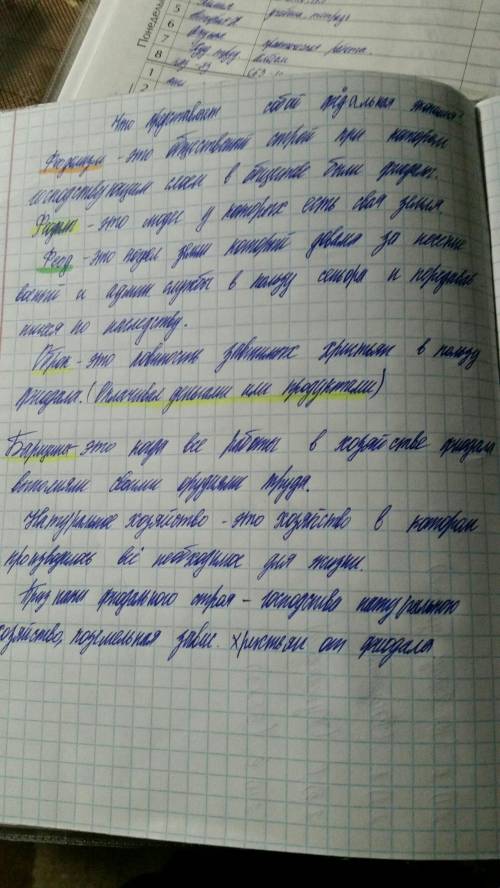 Понедель
5
6
7
8
1
2
Что представляет собой феодальная
Феодализм - это общественный строй при котором
господствующим слоем в обществе были феодалы.
Феодалы - это люди у которых есть своя земля.
Феод - это надел земли который давался за несение
военной и админ службы в пользу сеньора и передавав
шихся по наследству.
Оброк - это повинность зависимых христьян в пользу
феодала. (Оплачивал деньгами или продуктами)
Барщина - это когда все работы в хозяйстве феодала
выполняли своими орудиями труда.
Натуральное хозяйство - это хозяйство в котором
производилось всё необходимое для жизни.
Признаки феодального строя - господства натурального
хозяйство, поземельная завис. христьян от феодала.